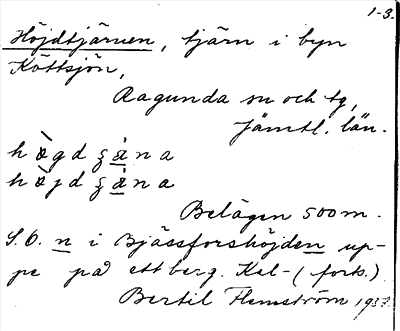 1-3.
Höjdtjärnen, tjärn i byn
Köttsjön,
Ragunda sn och tg,
Jämtl. län.
Belägen 500 m.
S.O. n i Bjässforshöjden up-
pe på ett berg. Kal- (forts.)
Bertil Flemström 1937.